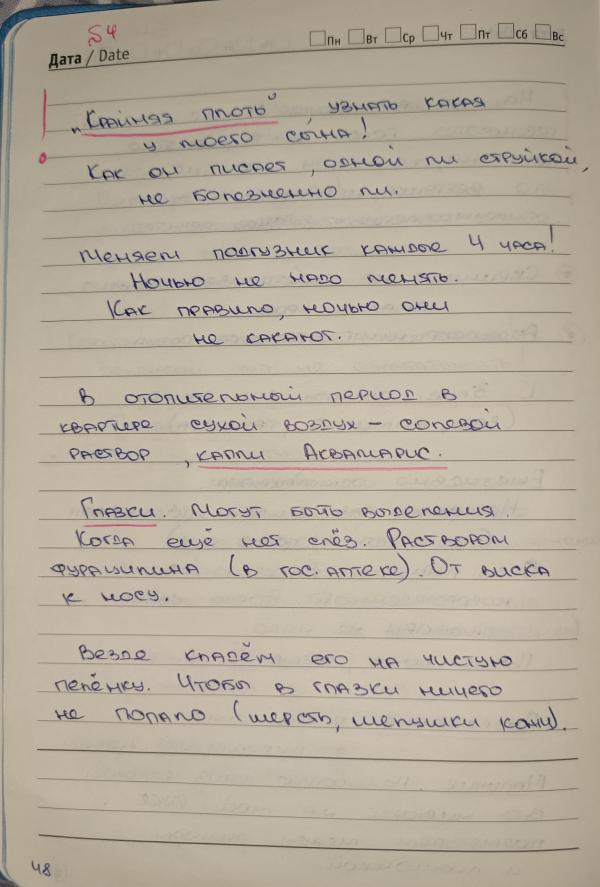 §4
Дата / Date
Пн Вт Ср Чт Пт Сб Вс
"Крайняя плоть" узнать какая
у моего сына!
Как он писает, одной ли струйкой,
не болезненно ли.
Меняем подгузник каждые 4 часа!
Ночью не надо менять.
Как правило, ночью они
не какают.
В отопительный период в
квартире сухой воздух – солевой
раствор, капли Аквамарис.
Глазки. Могут быть выделения.
Когда ещё нет слёз. Раствором
фурацилина (в гос. аптеке). От виска
к носу.
Везде кладём его на чистую
пелёнку. Чтобы в глазки ничего
не попало (шерсть, шелушки кожи).
48